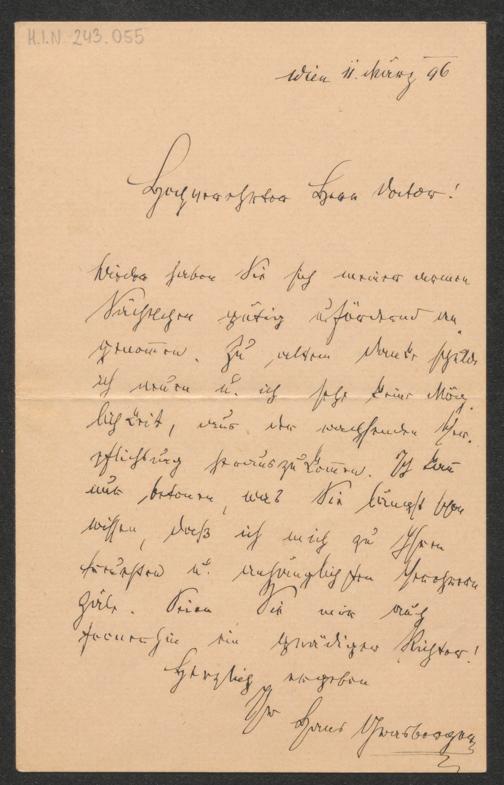 H.I.N. 243.055
Wien 11. März 96
Hochverehrter Herr Doctor!
Wieder haben Sie sich meiner armen
Sächelchen gütig u. fördernd an
genommen. Zu altem Danke schulde
ich neuen u. ich sehe keine Mög-
lichkeit, aus der wachsenden Ver-
pflichtung herauszukommen. Ich kann
nur betonen, was Sie längst schon
wissen, daß ich mich zu Ihren
treuesten u. anhänglichsten Verehrern
zäle. Seien Sie mir auch
fernerhin ein gnädiger Richter!
Herzlich ergeben
Ihr Hans